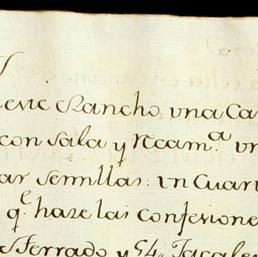 este Rancho, una Ca
con sala y Recam.ª un
ar semillas: un Cuart
q.e hase las confesione
s Ferrado, y 54„ Jacale